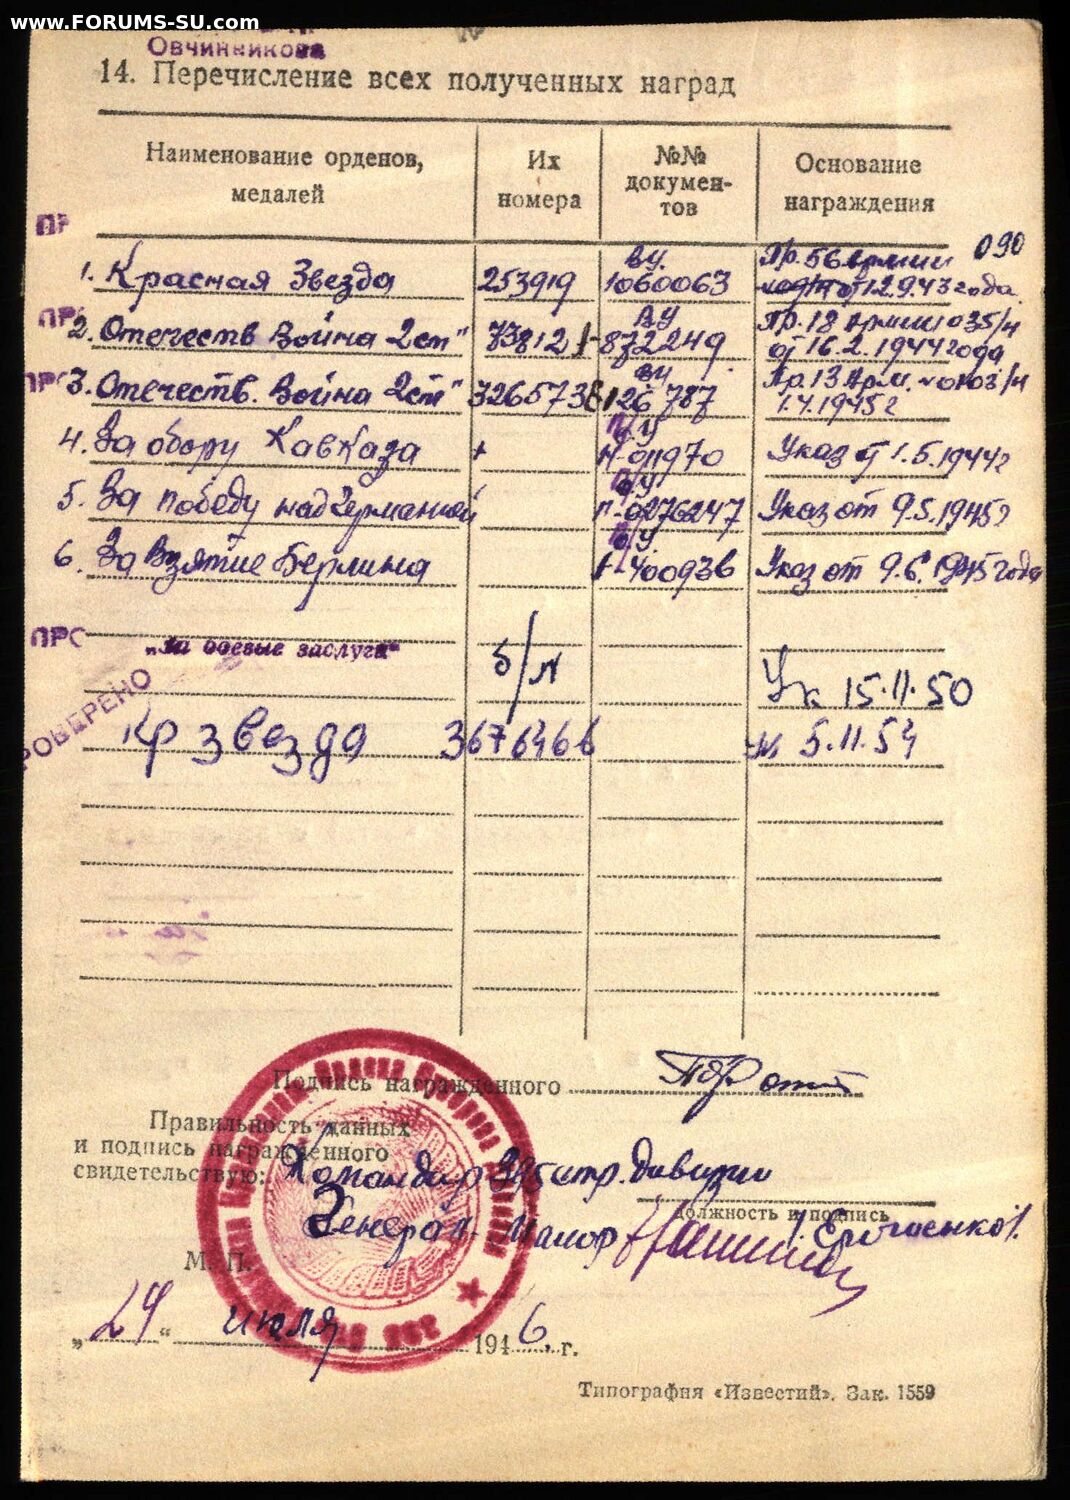 www.FORUMS-SU.com
Овчинникова
14. Перечисление всех полученных наград
Наименование орденов, медалей | Их номера | №№ документов | Основание награждения
ПР
1. Красная Звезда | 253919 | ВУ 1060063 | Пр. 56 армии 090 от 12.9.43 года
ПРО
2. Отечеств Война 2 ст" | 73812 | ВУ 872249 | Пр. 18 Армии 035/н от 16.2.1944 года
ПРО
3. Отечеств. Война 2 ст" | 326573 | ВУ 126787 | Пр. 13 Арм. 1.7.1945г
4. За обору Кавказа | + | П/У Н-011970 | Указ от 1.5.1944г
5. За победу над Германией | П-0276247 | Указ от 9.5.1945г
6. За Взятие Берлина | П/У 400936 | Указ от 9.6.1945 года
ПРО
„За боевые заслуги“ | б/н | Ук 15.11.50
ПРОВЕРЕНО
Кр звезда 3676466 | 5.11.54
Подпись награжденного
Правильность данных
и подпись награжденного
свидетельствую: Командир 395 стр. дивизии
должность и подпись
Генерал-Маиор
М. П.
„24“ июля 1946 г.
Типография «Известий». Зак. 1559